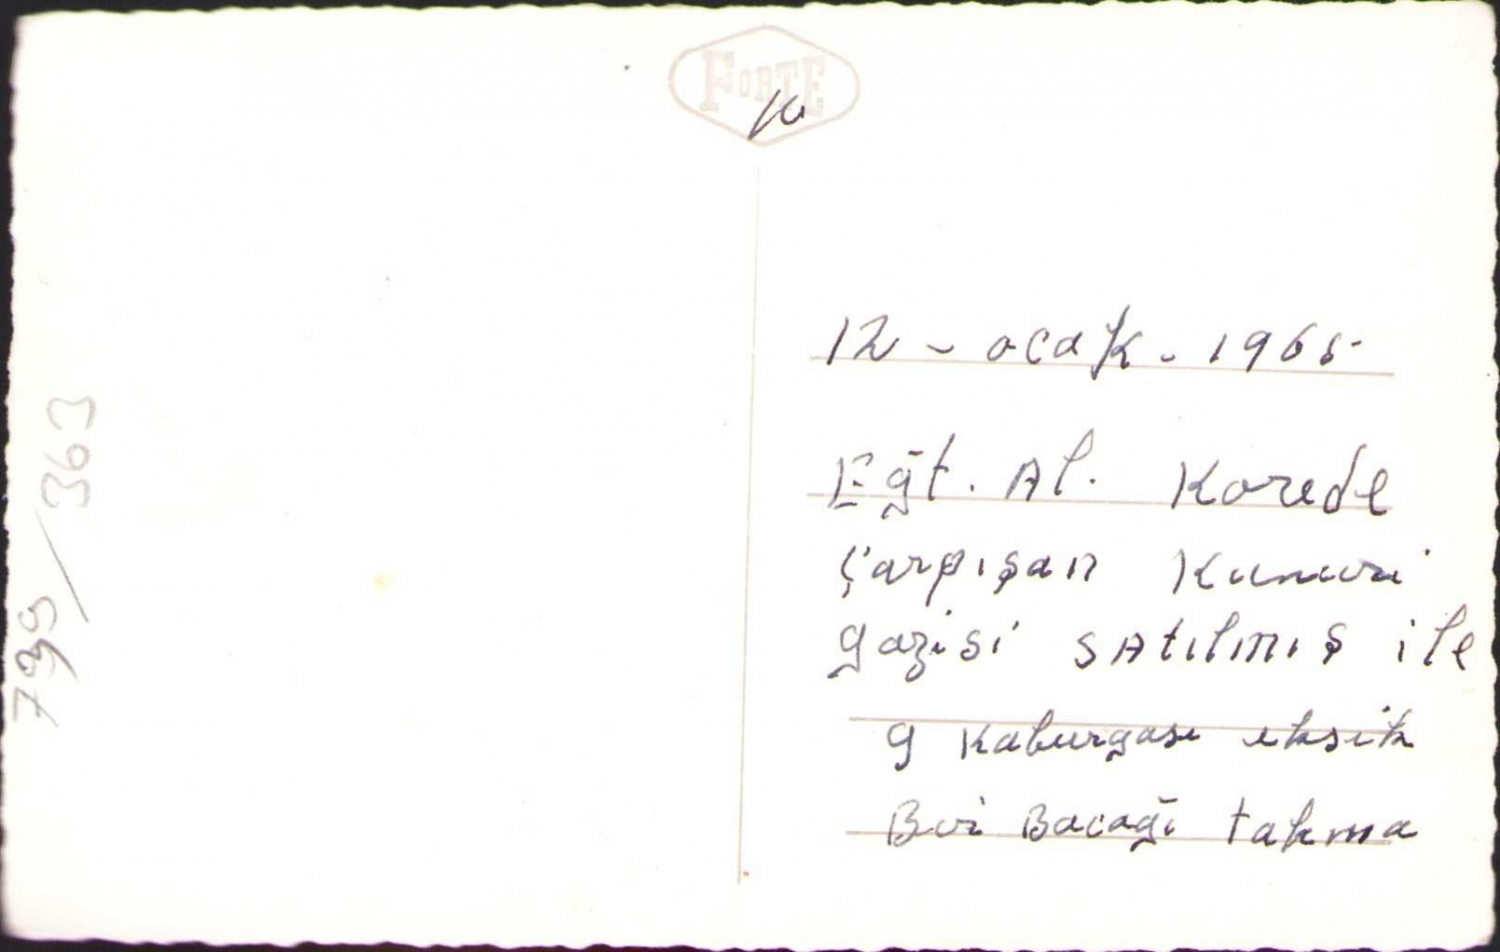 FORTE
12 - ocak - 1965
Eğt. Al. Korede
Çarpışan Kunuri
gazisi SAtılmış ile
9 Kaburgası eksik
Biri Bacağı takma
739/363